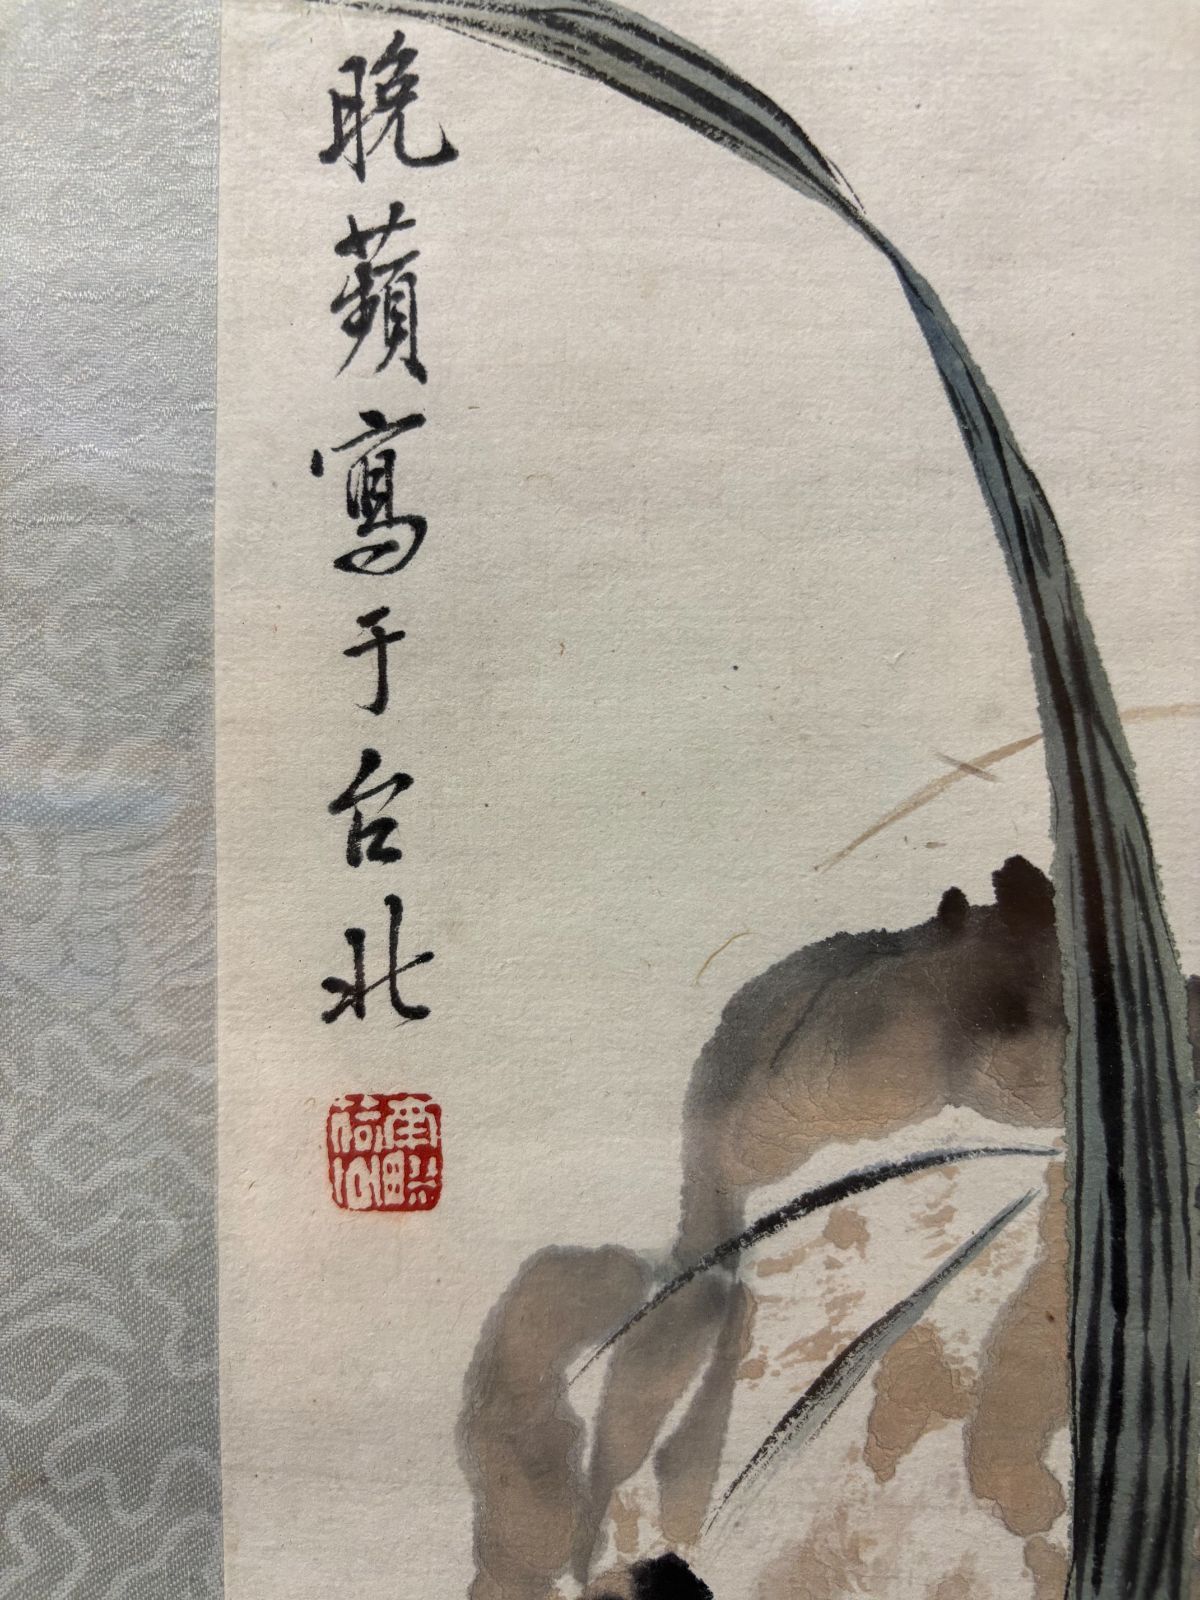 晚蘋寫于台北